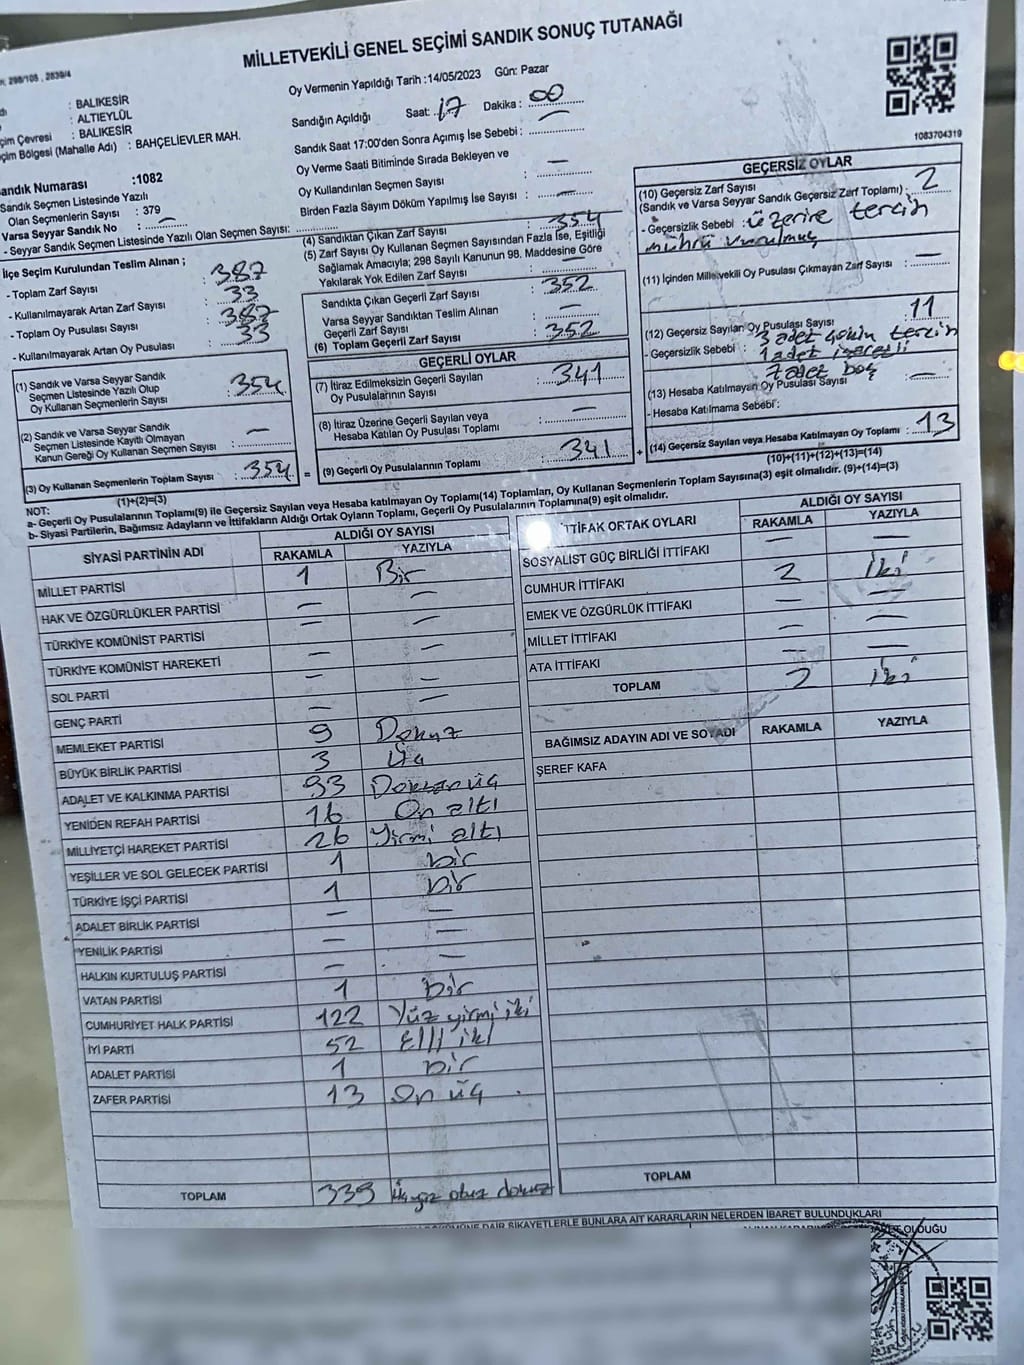 MİLLETVEKİLİ GENEL SEÇİMİ SANDIK SONUÇ TUTANAĞI
298/108 , 2839/4
Oy Vermenin Yapıldığı Tarih :14/05/2023 Gün: Pazar
: BALIKESİR
: ALTIEYLÜL
çim Çevresi : BALIKESİR
çim Bölgesi (Mahalle Adı) : BAHÇELİEVLER MAH.
andık Numarası :1082
Sandık Seçmen Listesinde Yazılı
Olan Seçmenlerin Sayısı : 379
Varsa Seyyar Sandık No : —
- Seyyar Sandık Seçmen Listesinde Yazılı Olan Seçmen Sayısı:
İlçe Seçim Kurulundan Teslim Alınan ;
- Toplam Zarf Sayısı : 387
- Kullanılmayarak Artan Zarf Sayısı : 33
- Toplam Oy Pusulası Sayısı : 387
- Kullanılmayarak Artan Oy Pusulası : 33
(1) Sandık ve Varsa Seyyar Sandık
Seçmen Listesinde Yazılı Olup
Oy Kullanan Seçmenlerin Sayısı : 354
(2) Sandık ve Varsa Seyyar Sandık
Seçmen Listesinde Kayıtlı Olmayan
Kanun Gereği Oy Kullanan Seçmen Sayısı : —
(3) Oy Kullanan Seçmenlerin Toplam Sayısı : 354
(1)+(2)=(3)
Sandığın Açıldığı Saat: 17 Dakika : 00
Sandık Saat 17:00'den Sonra Açımış İse Sebebi : —
Oy Verme Saati Bitiminde Sırada Bekleyen ve
Oy Kullandırılan Seçmen Sayısı : —
Birden Fazla Sayım Döküm Yapılmış İse Sayısı : —
(4) Sandıktan Çıkan Zarf Sayısı : 354
(5) Zarf Sayısı Oy Kullanan Seçmen Sayısından Fazla İse, Eşitliği
Sağlamak Amacıyla; 298 Sayılı Kanunun 98. Maddesine Göre
Yakılarak Yok Edilen Zarf Sayısı : —
Sandıkta Çıkan Geçerli Zarf Sayısı : 352
Varsa Seyyar Sandıktan Teslim Alınan
Geçerli Zarf Sayısı : —
(6) Toplam Geçerli Zarf Sayısı : 352
GEÇERLİ OYLAR
(7) İtiraz Edilmeksizin Geçerli Sayılan
Oy Pusulalarının Sayısı : 341
(8) İtiraz Üzerine Geçerli Sayılan veya
Hesaba Katılan Oy Pusulası Toplamı : —
= (9) Geçerli Oy Pusulalarının Toplamı : 341
1083704319
GEÇERSİZ OYLAR
(10) Geçersiz Zarf Sayısı
(Sandık ve Varsa Seyyar Sandık Geçersiz Zarf Toplamı) : 2
- Geçersizlik Sebebi : üzerine tercih
mührü vurulmuş
(11) İçinden Milletvekili Oy Pusulası Çıkmayan Zarf Sayısı : —
(12) Geçersiz Sayılan Oy Pusulası Sayısı : 11
- Geçersizlik Sebebi : 3 adet çoklu tercih
1 adet işaretli
7 adet boş
(13) Hesaba Katılmayan Oy Pusulası Sayısı : —
- Hesaba Katılmama Sebebi :
+ (14) Geçersiz Sayılan veya Hesaba Katılmayan Oy Toplamı : 13
(10)+(11)+(12)+(13)=(14)
NOT:
a- Geçerli Oy Pusulalarının Toplamı(9) ile Geçersiz Sayılan veya Hesaba katılmayan Oy Toplamı(14) Toplamları, Oy Kullanan Seçmenlerin Toplam Sayısına(3) eşit olmalıdır. (9)+(14)=(3)
b- Siyasi Partilerin, Bağımsız Adayların ve İttifakların Aldığı Ortak Oyların Toplamı, Geçerli Oy Pusulalarının Toplamına(9) eşit olmalıdır.
SİYASİ PARTİNİN ADI ALDIĞI OY SAYISI
RAKAMLA YAZIYLA
MİLLET PARTİSİ 1 Bir
HAK VE ÖZGÜRLÜKLER PARTİSİ — —
TÜRKİYE KOMÜNİST PARTİSİ — —
TÜRKİYE KOMÜNİST HAREKETİ — —
SOL PARTİ — —
GENÇ PARTİ — —
MEMLEKET PARTİSİ 9 Dokuz
BÜYÜK BİRLİK PARTİSİ 3 Üç
ADALET VE KALKINMA PARTİSİ 93 Doksan üç
YENİDEN REFAH PARTİSİ 16 On altı
MİLLİYETÇİ HAREKET PARTİSİ 26 Yirmi altı
YEŞİLLER VE SOL GELECEK PARTİSİ 1 bir
TÜRKİYE İŞÇİ PARTİSİ 1 bir
ADALET BİRLİK PARTİSİ — —
YENİLİK PARTİSİ — —
HALKIN KURTULUŞ PARTİSİ — —
VATAN PARTİSİ 1 bir
CUMHURİYET HALK PARTİSİ 122 Yüz yirmi iki
İYİ PARTİ 52 Elli iki
ADALET PARTİSİ 1 bir
ZAFER PARTİSİ 13 On üç
TOPLAM 339 Üçyüz otuz dokuz
İTTİFAK ORTAK OYLARI ALDIĞI OY SAYISI
RAKAMLA YAZIYLA
SOSYALİST GÜÇ BİRLİĞİ İTTİFAKI — —
CUMHUR İTTİFAKI 2 İki
EMEK VE ÖZGÜRLÜK İTTİFAKI — —
MİLLET İTTİFAKI — —
ATA İTTİFAKI — —
TOPLAM 2 İki
BAĞIMSIZ ADAYIN ADI VE SOYADI RAKAMLA YAZIYLA
ŞEREF KAFA
TOPLAM
DAİR ŞİKAYETLERLE BUNLARA AİT KARARLARIN NELERDEN İBARET BULUNDUKLARI
OLDUĞU